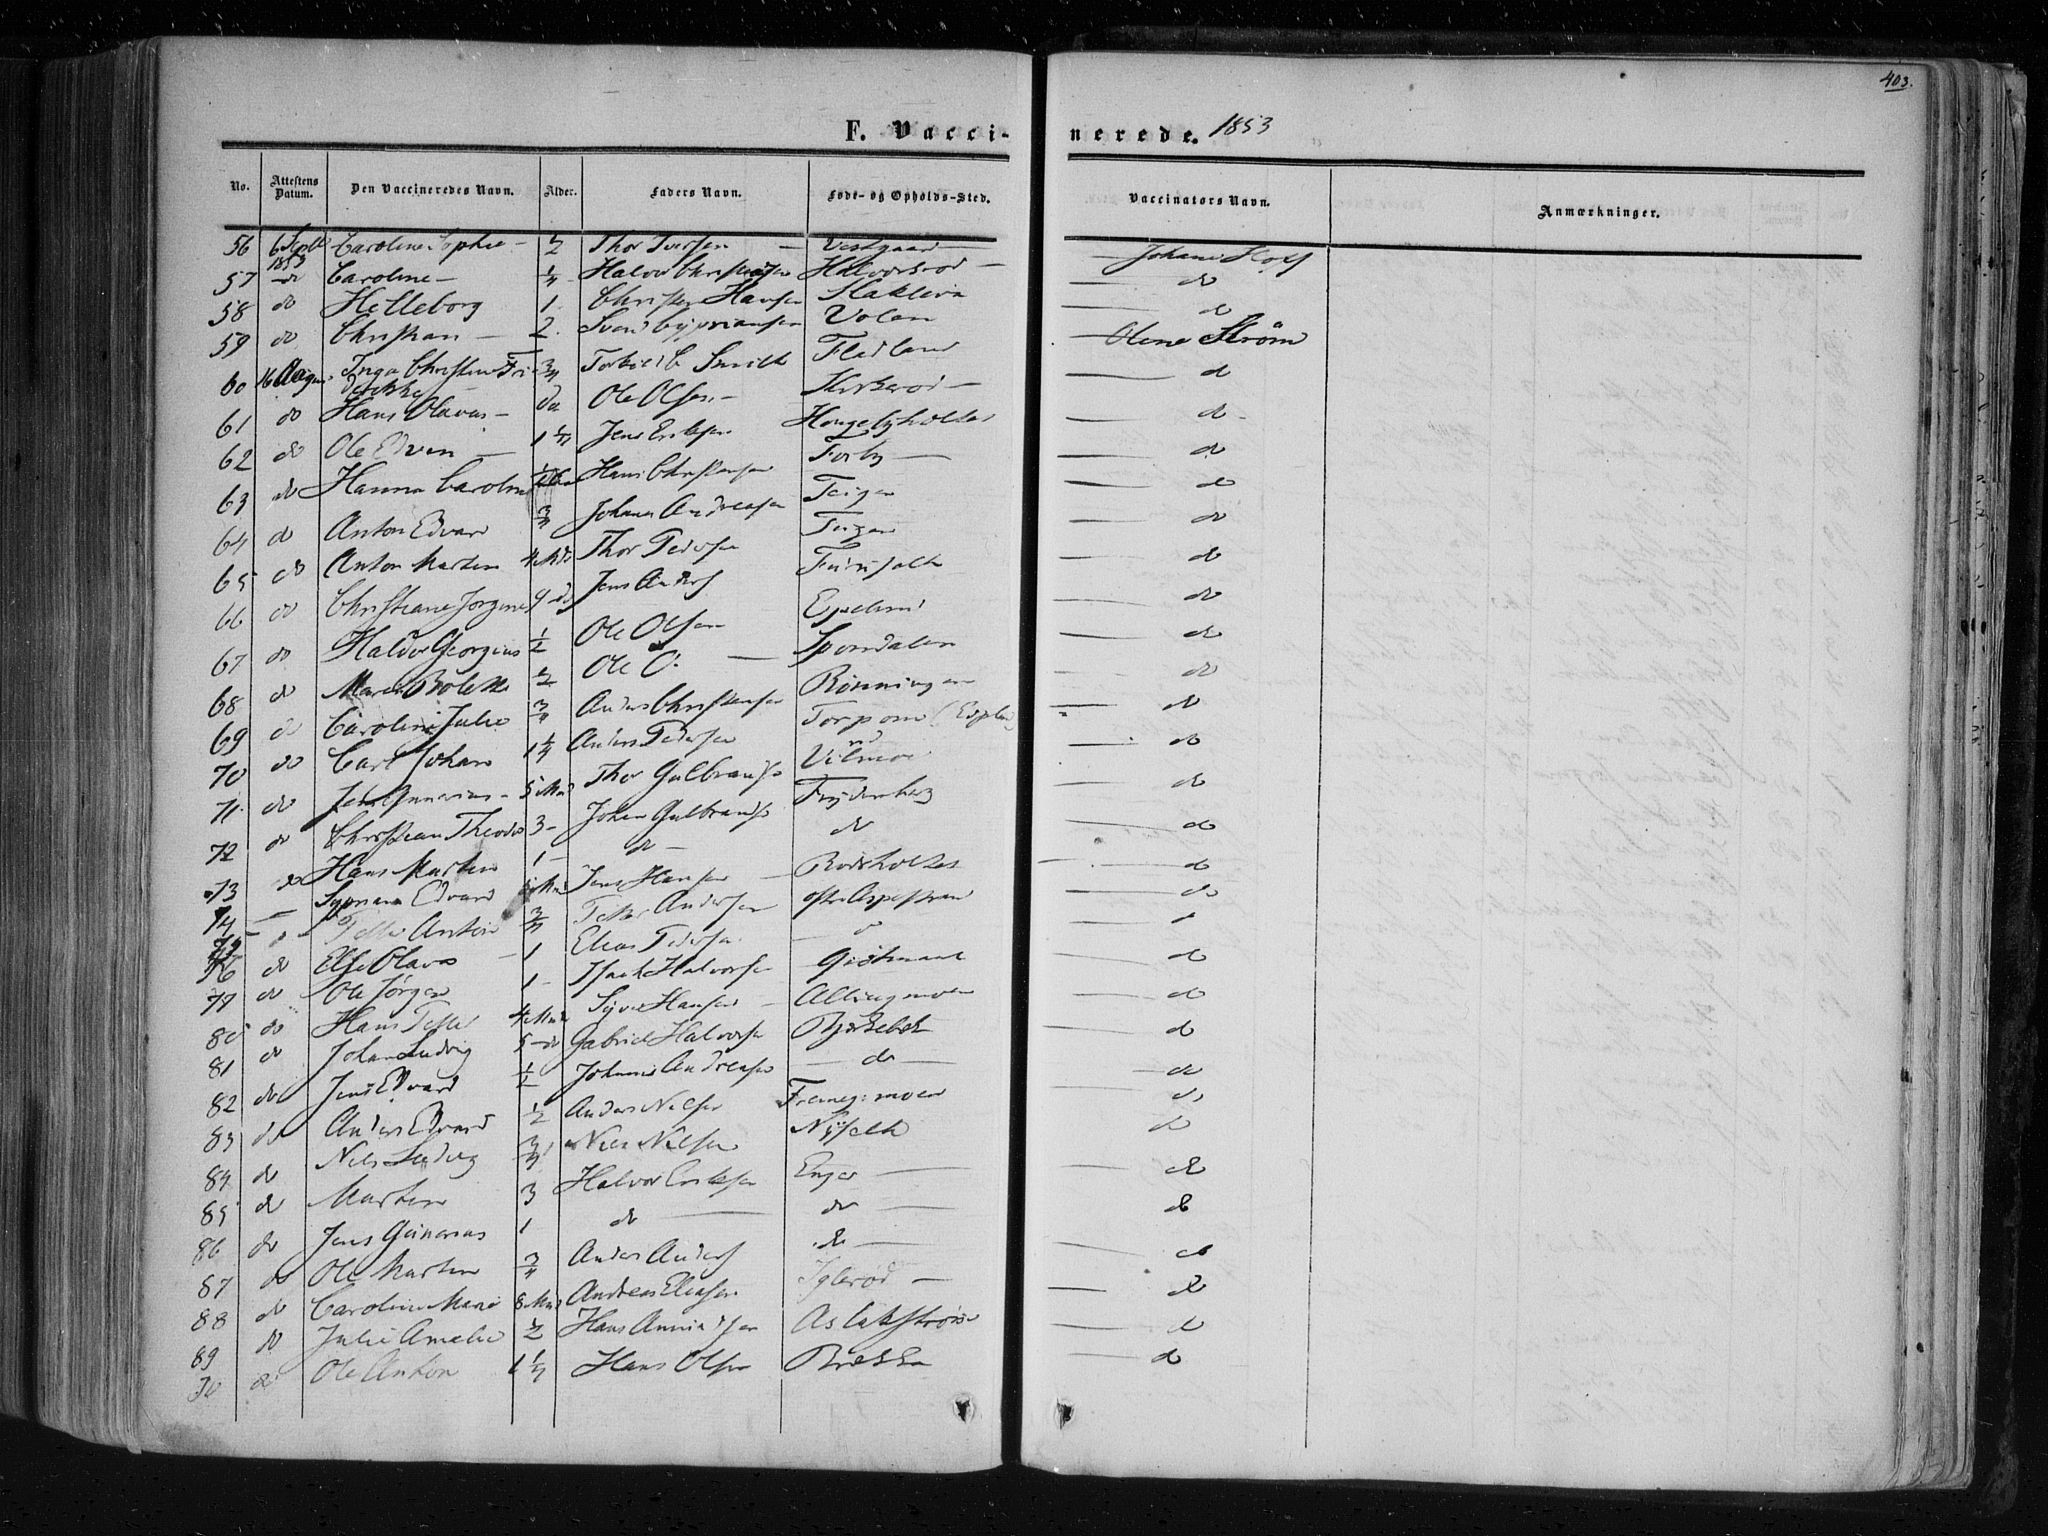 403.
F. Vacci- nerede. 1853
No. Attestens Datum. Den Vaccineredes Navn. Alder. Faders Navn. Føde- og Opholds-Sted. Vaccinators Navn. Anmærkninger.
56 6 Septb 1853 Caroline Sophie - 1/2 Thor Iversen - Vestgaard - Johan
57 do Caroline - 1/4 Halvor Christensen Halvorsrød - do
58 do Helleborg 1 Christen Hansen Slaklevia do
59 do Christian - 2. Svend Cypriansen Volen - Olene Strøm
60 16 August Inga Christine Fridrikke 3/4 Torkild C Smith Fladland do
61 do Hans Olavus - do Ole Olsen - - do
62 do Ole Edvin - 1 1/4 Jens Eriksen Hougebyholtet do
63 do Hanna Caroline Hans Christensen Forby - do
64 do Anton Edvard 3/4 Johannes Andreasen Teigen do
65 do Anton Martin 4 Mdr Thor Pedersen Teigen do
66 do Christiane Jørgine 9 do Jens Anders Furufalt do
67 do Halvor Georgius 1/2 Ole Olsen Espelund do
68 do Maren Bolette 1/2 Ole O. - Sporndalen do
69 do Caroline Julie 3/4 Anders Christensen Rønningen do
70 do Carl Johan 1 1/4 Anders Pedersen Torpom (Espelund do
71. do Jens Gunerius - 5 Mnd Thor Gulbrands Vilmoe do
72 do Christian Theodor 3 - Johan Gulbrands Frydenberg do
73 do Hans Martin 1 - do - do do
74 - Syprian Edvard Mnd Jens Hansen - Rodsholtet do
75 do Peter Anton 3/4 Peter Andersen do
76 do Else Olava - 1 Elias Pedersen - do - do
77 do Ole Jørgen 1 - Isach Halvorsen do
80 do Hans Peter 4 Mnd Syver Hansen - Allingmoen do
81 do Johan Ludvig 5 do Gabriel Halvorsen Bjerkebek do
82 do Jens Edvard 1/2 Johannes Andreasen - do - do
83 do Anders Edvard 1/2 Anders Nilsen do
84 do Nils Ludvig 3/4 Niels Nilsen do
85 do Martin 3 Halvor Eriksen Enger - do
86 do Jens Gunerius 1 do - do - do
87 do Ole Martin 3/4 Anders Anders do - do
88 do Caroline Marie 8 Mnd Andreas Eliasen Iglerød - do
89 do Julie Amalie 1/2 Hans Amundsen Aslakstrøm do
90 do Ole Anton 1 1/4 Hans Olsen Brekke do